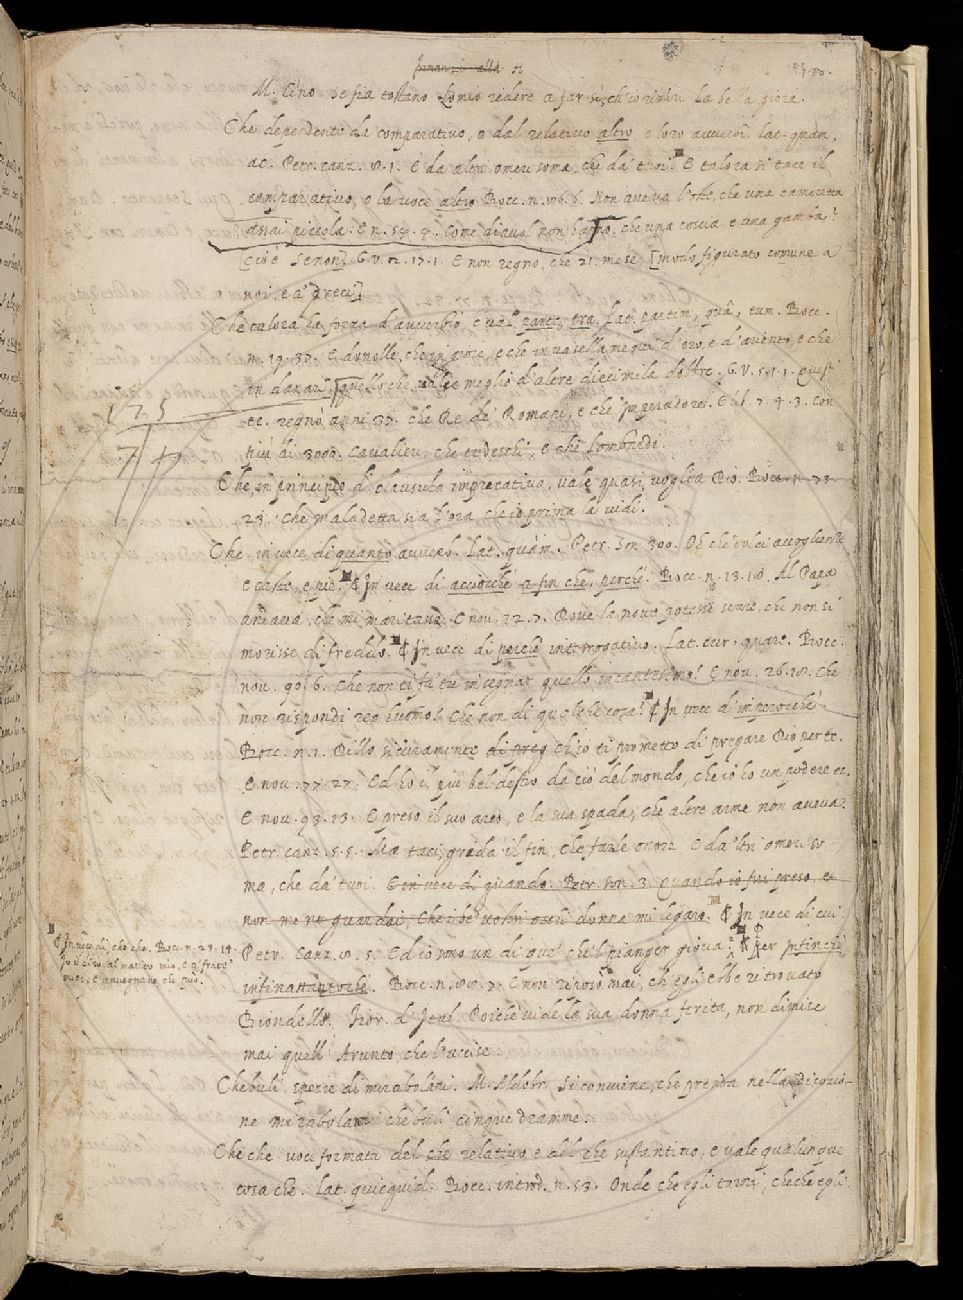 530.
M. Cino se fia tostano Homo redere a far sì, ch'io rinviu la bella gioia.
Che dependente da comparativo, o dal relativo altro, e loro avverbi. Lat. quàm,
ac. Petr. canz. 8. 1. E da altri omeri soma, che da' tuoi. E talora si tace il
comparativo, o la voce altro Bocc. n. 6. Non aveva l'oste, che una cameretta
assai piccola. E n. 54. 4. Come diavol non hanno, che una coscia, e una gamba?
[cioè Se non] G.V. 12. 17. 1. E non regnò, che 21. mese [modo figurato comune a
noi, e a' Greci]
Che talora ha forza d'avverbio, e vale parte, tra. Lat. partim, quà, tum. Bocc.
n. 19. 37. E donolle, che in gioie, e che in vasellamenti d'oro, e d'ariento, e che
in danari, quello che valse meglio d'altre diecimila dobbre. G.V. 5. 1. 1. Quest'
ec. regnò anni 37. che Re de' Romani, e che Imperadore. E lib. 7. 4. 3. Con
più di 3000. Cavalieri che tedeschi, e che Lombardi.
Che in principio di clausula imprecativa, vale quasi voglia Dio. Bocc. n. 73.
23. Che maladetta sia l'ora che io prima la vidi.
Che in vece di quanto avverb. Lat. quàm. Petr. Son. 300. Oh che dolci accoglienze
e caste, e pie. ¶ In vece di acciocchè a fin che, perchè. Bocc. n. 13. 18. Al Papa
andava, che mi maritasse. E nou. 12. 7. Dove la notte potesse stare, che non si
morisse di freddo. ¶ In vece di perchè interrogativo. Lat. cur. quare. Bocc.
nou. 90. 6. Che non ti fa' tu insegnar quello incantesimo? E nou. 26. 18. Che
non rispondi reo huomo? Che non di qualche cosa? ¶ In vece d'imperocchè
Bocc. n. 1. Dillo sicuramente di preg ch'io ti prometto di pregare Dio per te.
E nou. 77. 27. Ed ho il più bel destro da ciò del mondo, che io ho un podere ec.
E nou. 93. 13. E preso il suo arco, e la sua spada, che altre arme non aveva.
Petr. canz. 5. 5. Ma taci, grida il fin, che farle onore E d'altri omeri so
ma, che da' tuoi. E in vece di quando. Petr. Son. 3. Quando io fui preso, e
non me ne guardai, Che i be' vostri occhi donna mi legaro. ¶ In vece di cui
Petr. Canz. 8. 5. Ed io sono un di que' che 'l pianger giova? ¶ Per infinchè
¶ In vece di, che che. Bocc. n. 23. 14.
Io il dirò al marito mio, e a' frate'
miei, e avvegnane che può.
infinattantochè. Bocc. n. 88. 7. E non riposò mai, ch'egli ebbe ritrovato
Biondello. Fior. d'Ital. Poichè vide la sua donna ferita, non dimise
mai quell' Arunto, che l'uccise.
Chebuli spezie di mirabolani. M. Aldobr. Si conviene, che prenda nella dicozio-
ne mirabolani chebuli cinque dramme.
Che che voce formata del che relativo e del che sustantivo, e vale qualunque
cosa che. Lat. quicquid. Bocc. introd. n. 53. Onde che egli torni, che che egli